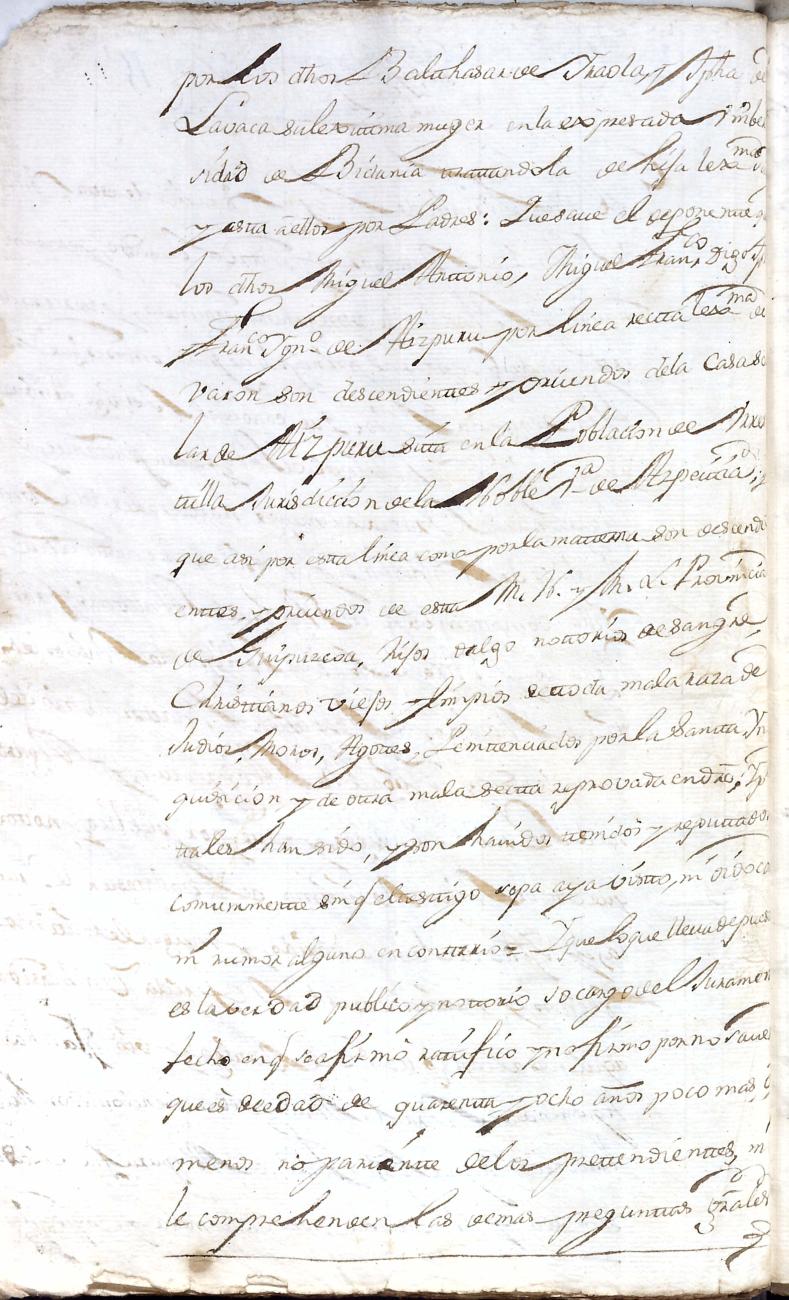 por los dhos Balthasar de Iraola, y Jpha de
Lavaca su lexitima muger en la expresada Vnber
sidad de Bidania tratandola de hija lexma
y esta a ellos por Padres: Que save el deponente q
los dhos Miguel Antonio, Miguel Franco, digo
Franco Ygno de Aizpuru por linea recta lexma de
varon son descendientes y oriundos de la Casa so
lar de Aizpuru sita en la Poblacion de Urres
tilla Jurisdiccion de la Noble Va de Azpeitia, y
que asi por esta linea como por la materna son descendi
entes, y oriundos de esta M. N. y M. L. Provincia
de Guipuzcoa, hijos dalgo nottorios de sangre,
Christianos viejos, limpios de toda mala raza de
Judios, Moros, Agotes, Penitenciados por la Santa Yn
quisicion y de otra mala secta reprovada en dro, y p
tales han sido, y son havidos tenidos y reputados
comunmente sin q el testigo sepa aya visto, ni oido co
ni rumor alguno en contrario = Y que lo que lleva depues
es la verdad publico y nottorio so cargo del Juramen
fecho en q se afirmó ratificó y no firmo por no saver
que es de edad de quarenta y ocho años poco mas, o
menos no pariente de los pretendientes, ni
le comprehenden las demas preguntas grales